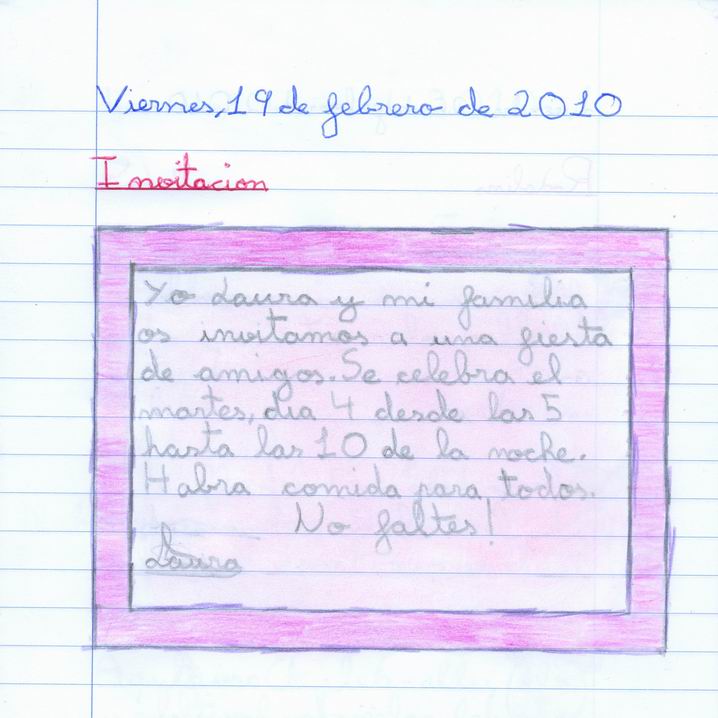 Viernes, 19 de febrero de 2010
Invitacion
Yo Laura y mi familia
os invitamos a una fiesta
de amigos. Se celebra el
martes, dia 4 desde las 5
hasta las 10 de la noche.
Habra comida para todos.
No faltes!
Laura